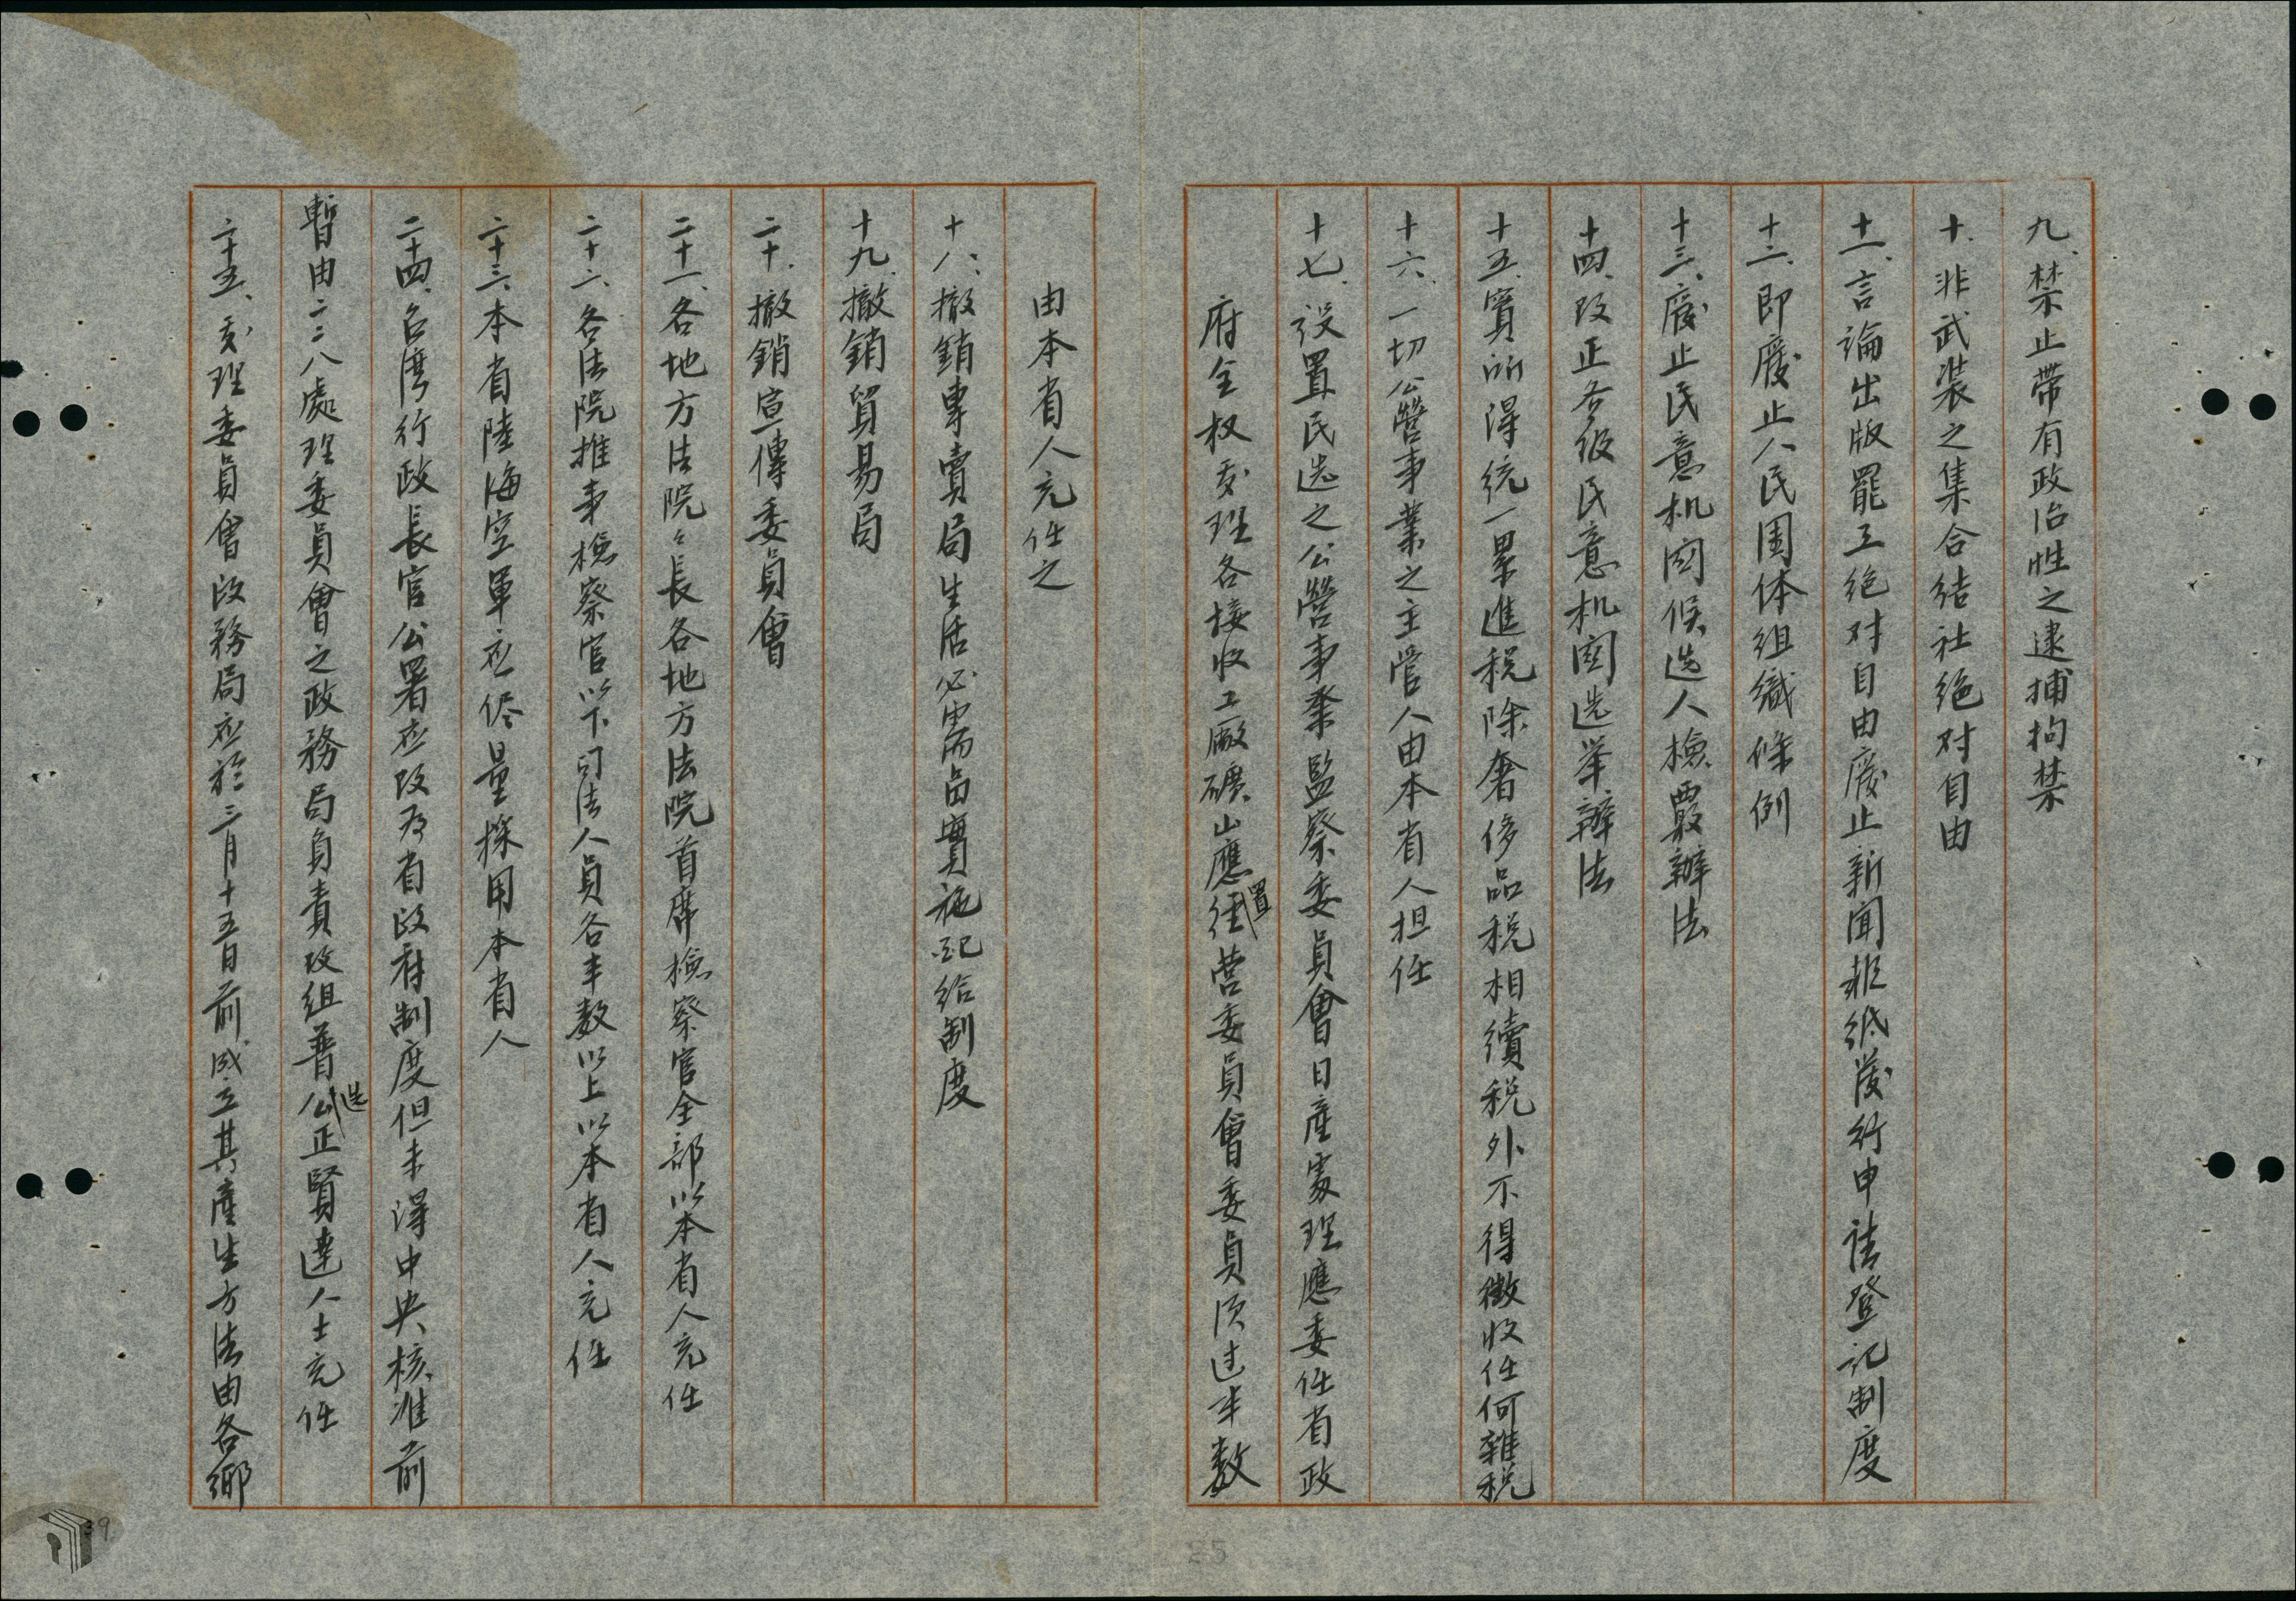 九、禁止帶有政治性之逮捕拘禁
十、非武裝之集合結社絕对自由
十一、言論出版罷工絕对自由廢止新聞報紙發行申請登記制度
十二、即廢止人民団体組織條例
十三、廢止民意机関候选人檢覈辦法
十四、改正各級民意机関选举辦法
十五、實所得統一累進税除奢侈品税相續税外不得徵收任何雜税
十六、一切公營事業之主管人由本省人担任
十七、設置民选之公營事業監察委員會日產處理應委任省政
府全权処理各接收工廠礦山應置経营委員會委員須过半数
由本省人充任之
十八、撤銷專賣局生活必需品實施配給制度
十九、撤銷貿易局
二十、撤銷宣傳委員會
二十一、各地方法院々長各地方法院首席檢察官全部以本省人充任
二十二、各法院推事檢察官以下司法人員各半数以上以本省人充任
二十三、本省陸海空軍应侭量採用本省人
二十四、台湾行政長官公署应改为省政府制度但未得中央核准前
暫由二二八處理委員會之政務局負責改組普选公正賢達人士充任
二十五、処理委員會政務局应於三月十五日前成立其產生方法由各鄉
25
39